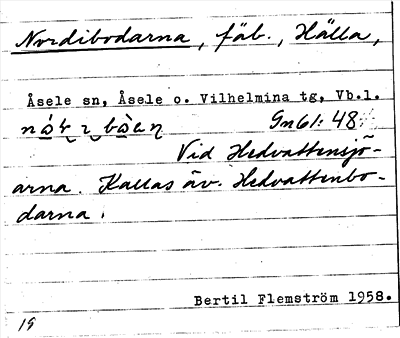 Nordibodarna, fäb., Hälla,
Åsele sn, Åsele o. Vilhelmina tg, Vb.l.
Gn61: 48
Vid Hedvattensjö-
arna. Kallas äv. Hedvattenbo-
darna.
Bertil Flemström 1958.